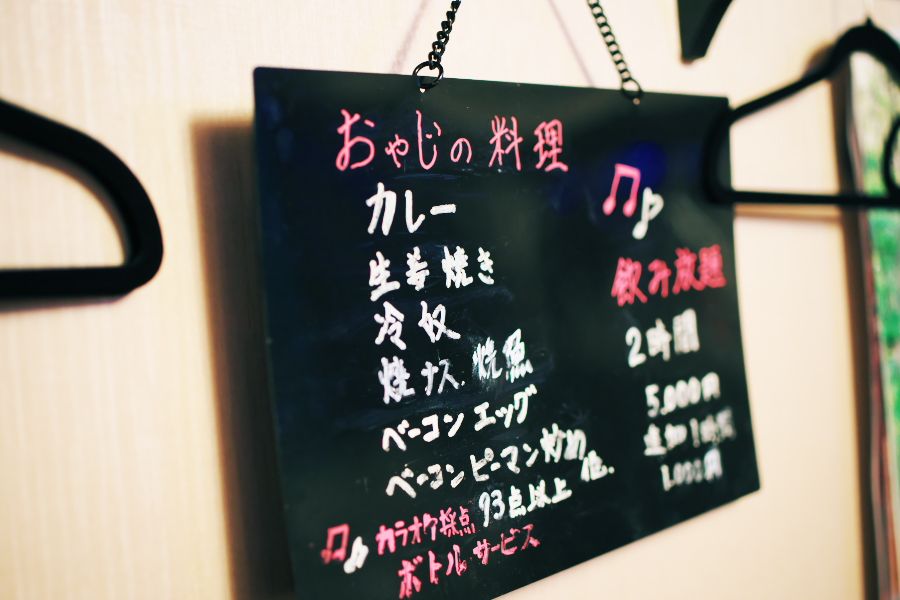 おやじの料理
カレー
生姜焼き
冷奴
焼ナス. 焼魚
ベーコンエッグ
ベーコンピーマン炒め 他.
カラオケ採点 93点以上
ボトルサービス
飲み放題
2時間
5,000円
追加1時間
1,000円